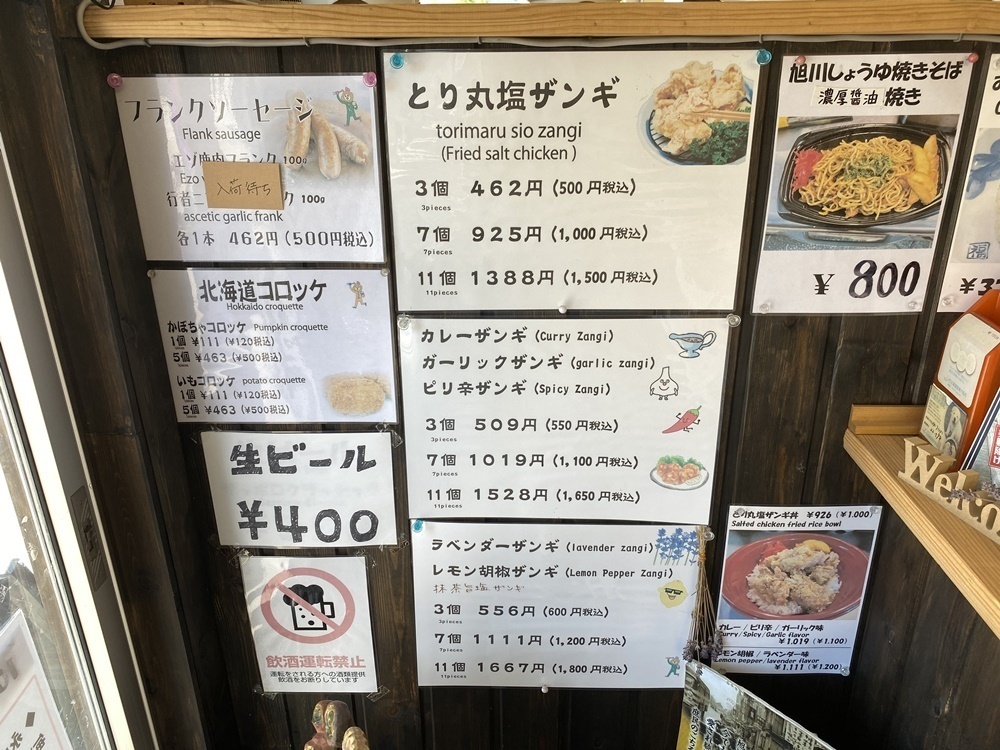 フランクソーセージ
Flank sausage
エゾ鹿肉フランク 100g
Ezo
入荷待ち
行者ニ ク 100g
ascetic garlic frank
各1本 462円(500円税込)
北海道コロッケ
Hokkaido croquette
かぼちゃコロッケ Pumpkin croquette
1個 ¥111 (¥120税込)
5個 ¥463 (¥500税込)
いもコロッケ potato croquette
1個 ¥111 (¥120税込)
5個 ¥463 (¥500税込)
生ビール
¥400
飲酒運転禁止
運転をされる方への酒類提供
飲酒をお断りしています
とり丸塩ザンギ
torimaru sio zangi
(Fried salt chicken )
3個 462円 (500円税込)
3pieces
7個 925円 (1,000円税込)
7pieces
11個 1388円 (1,500円税込)
11pieces
カレーザンギ (Curry Zangi)
ガーリックザンギ (garlic zangi)
ピリ辛ザンギ (Spicy Zangi)
3個 509円 (550円税込)
3pieces
7個 1019円 (1,100円税込)
7pieces
11個 1528円 (1,650円税込)
11pieces
ラベンダーザンギ (lavender zangi)
レモン胡椒ザンギ (Lemon Pepper Zangi)
抹茶旨塩ザンギ
3個 556円 (600円税込)
3pieces
7個 1111円 (1,200円税込)
7pieces
11個 1667円 (1,800円税込)
11pieces
旭川しょうゆ焼きそば
濃厚醤油焼き
¥800
福
とり丸塩ザンギ丼 ¥926 (¥1.000)
Salted chicken fried rice bowl
カレー/ピリ辛/ガーリック味
Curry/Spicy/Garlic flavor
¥1.019 (¥1.100)
レモン胡椒/ラベンダー味
Lemon pepper/lavender flavor
¥1.111 (¥1.200)
Welco